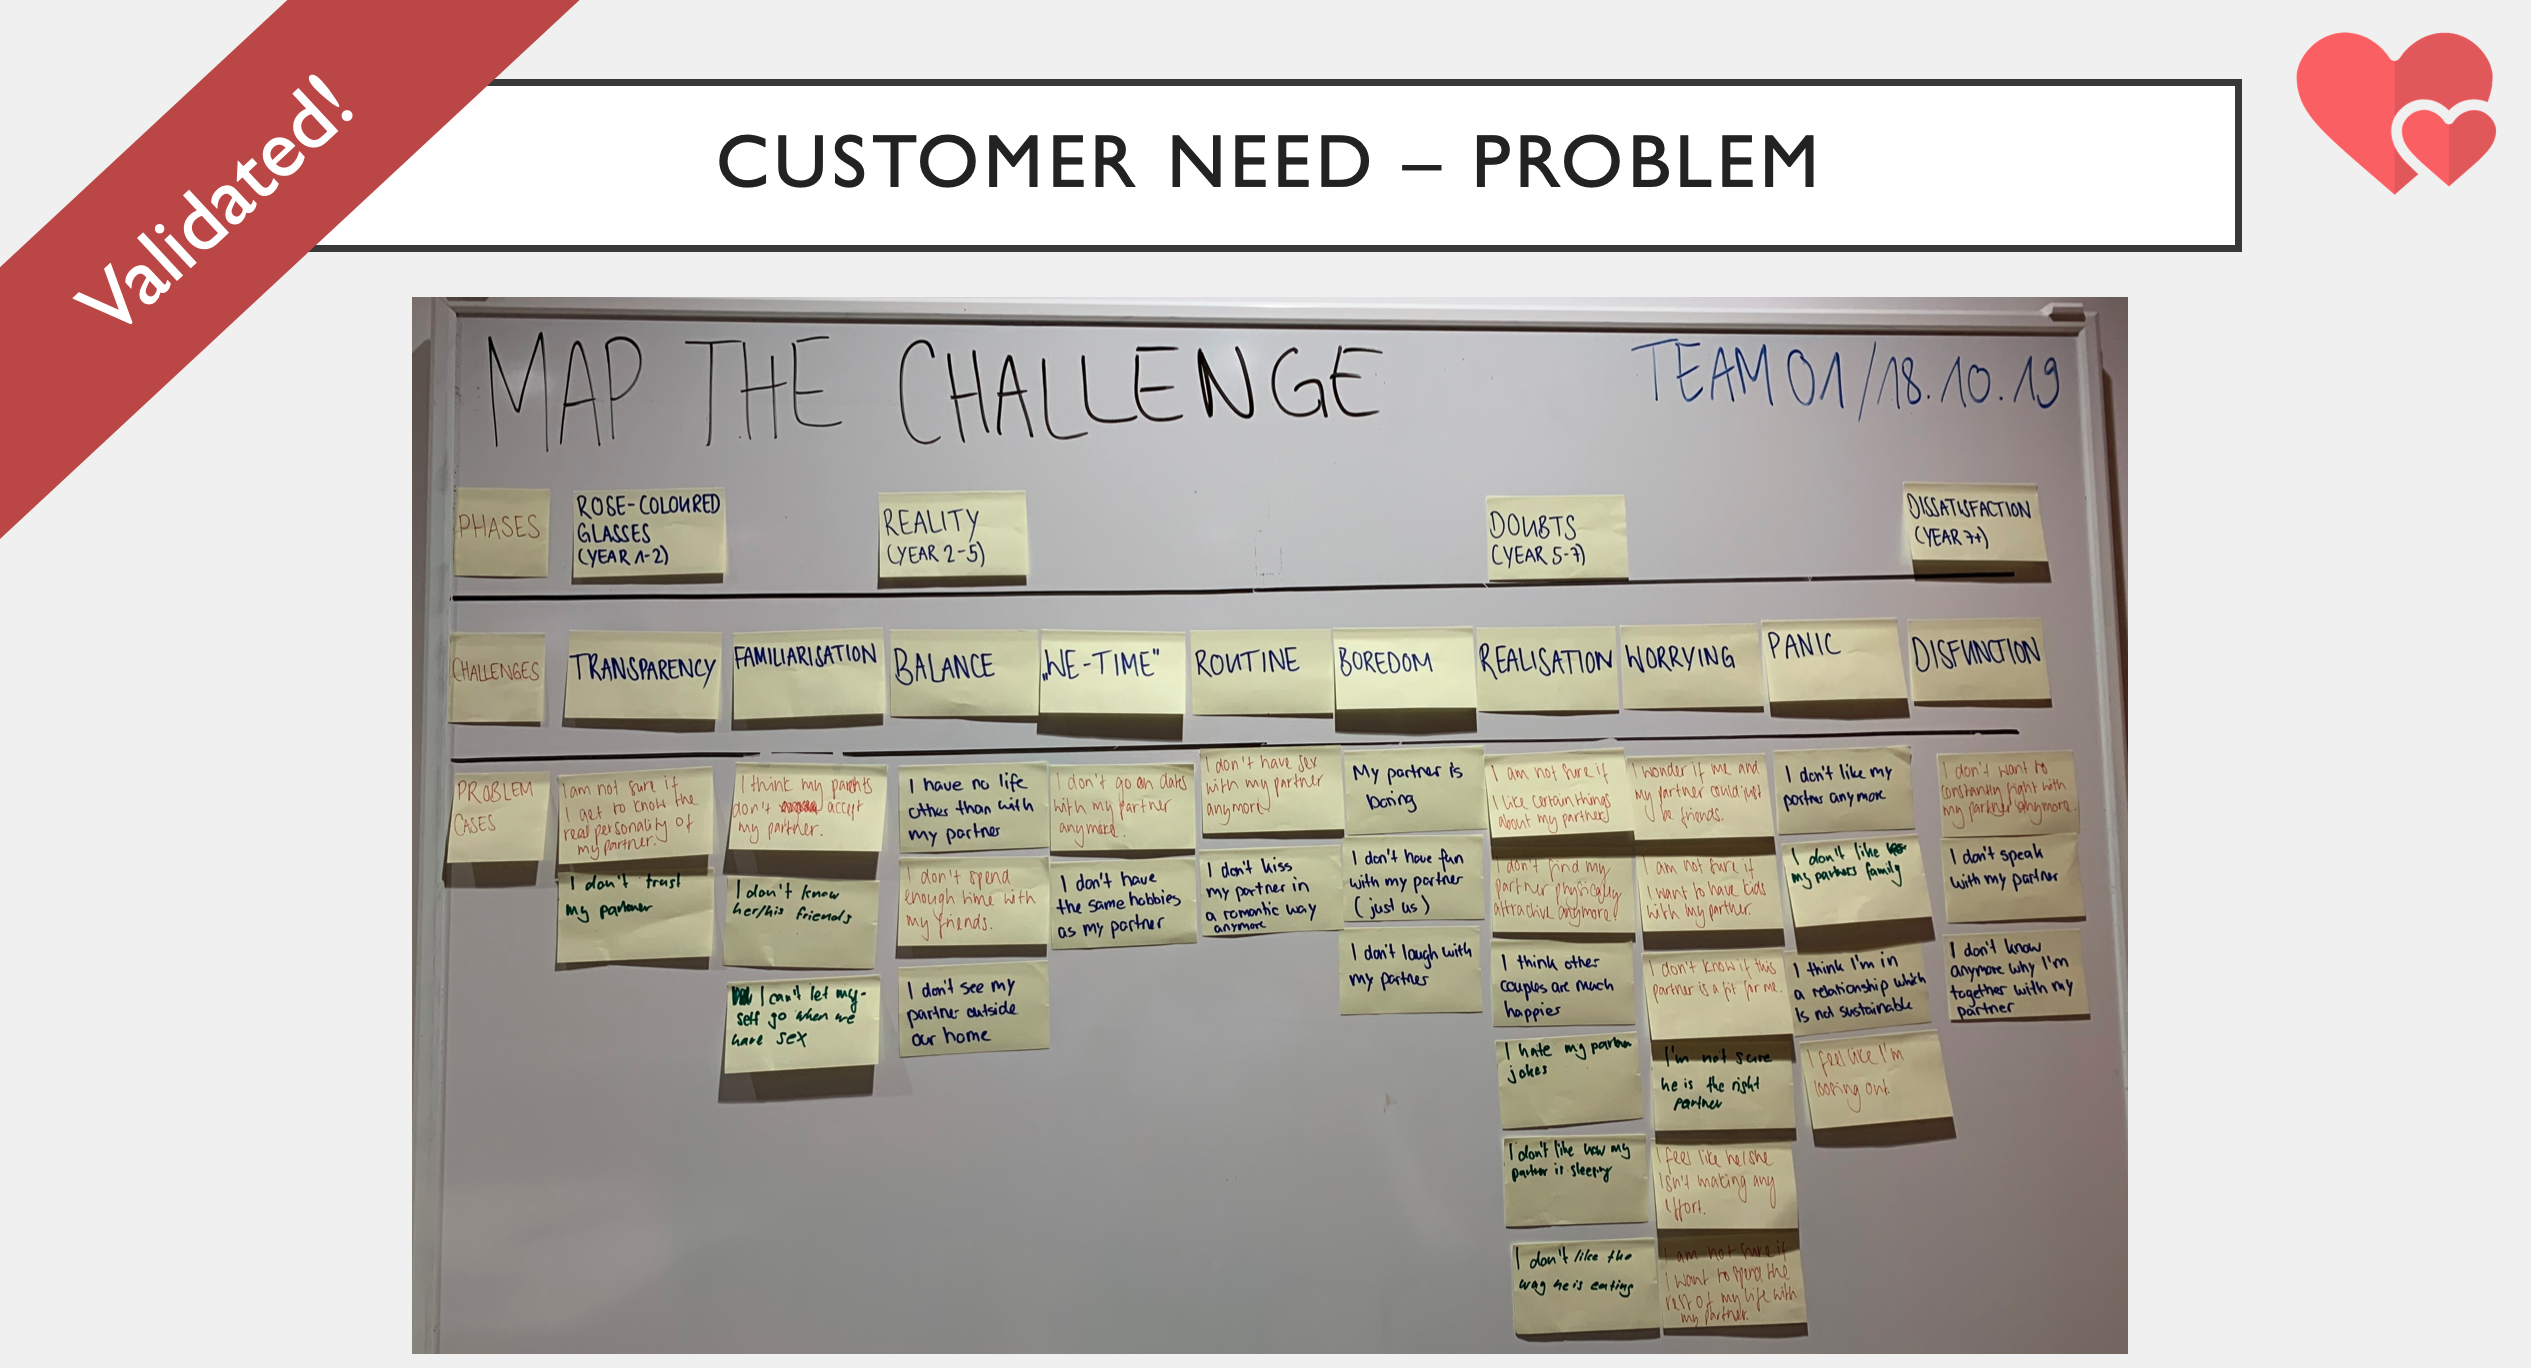 Validated!
CUSTOMER NEED – PROBLEM
MAP THE CHALLENGE
TEAM 01/18.10.19
PHASES
ROSE-COLOURED
GLASSES
(YEAR 1-2)
REALITY
(YEAR 2-5)
DOUBTS
(YEAR 5-7)
DISSATISFACTION
(YEAR 7+)
CHALLENGES
TRANSPARENCY
FAMILIARISATION
BALANCE
„WE-TIME"
ROUTINE
BOREDOM
REALISATION
WORRYING
PANIC
DISFUNCTION
PROBLEM
CASES
I am not sure if
I get to know the
real personality of
my partner.
I don't trust
my partner
I think my parents
don't accept
my partner.
I don't know
her/his friends
I can't let my-
self go when we
have sex
I have no life
other than with
my partner
I don't spend
enough time with
my friends.
I don't see my
partner outside
our home
I don't go on dates
with my partner
anymore.
I don't have
the same hobbies
as my partner
I don't have sex
with my partner
anymore
I don't kiss
my partner in
a romantic way
anymore
My partner is
boring
I don't have fun
with my partner
(just us)
I don't laugh with
my partner
I am not sure if
I like certain things
about my partner
I don't find my
partner physically
attractive anymore.
I think other
couples are much
happier
I hate my partner
jokes
I don't like how my
partner is sleeping
I don't like the
way he is eating
I wonder if me and
my partner could just
be friends.
I am not sure if
I want to have kids
with my partner.
I don't know if this
partner is a fit for me.
I'm not sure
he is the right
partner
I feel like he/she
isn't making any
effort.
I am not sure if
I want to spend the
rest of my life with
my partner.
I don't like my
partner anymore
I don't like
my partners family
I think I'm in
a relationship which
is not sustainable
I feel like I'm
loosing out.
I don't want to
constantly fight with
my partner anymore.
I don't speak
with my partner
I don't know
anymore why I'm
together with my
partner